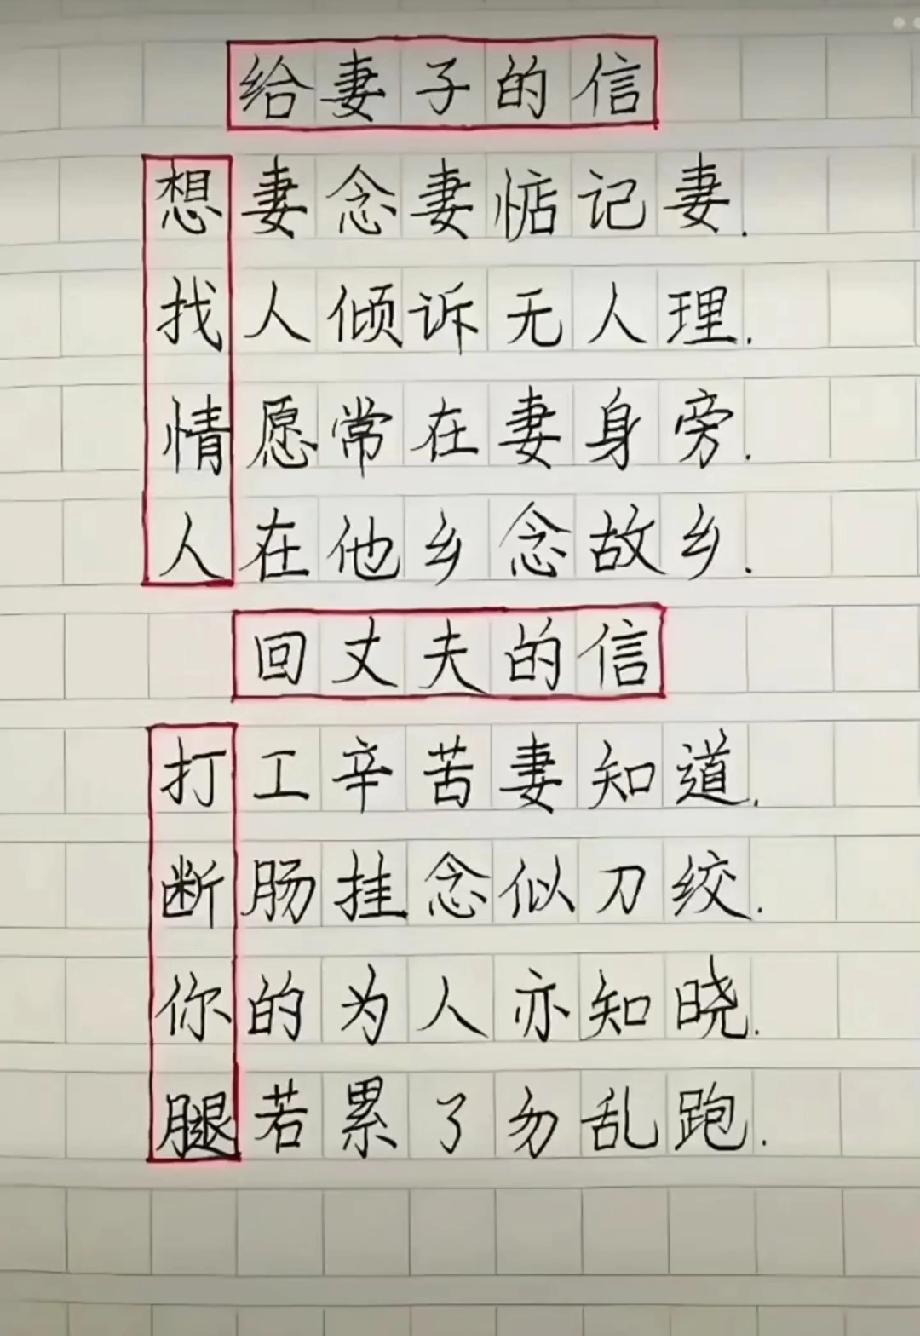 给妻子的信
想妻念妻惦记妻.
找人倾诉无人理.
情愿常在妻身旁.
人在他乡念故乡.
回丈夫的信
打工辛苦妻知道.
断肠挂念似刀绞.
你的为人亦知晓.
腿若累了勿乱跑.